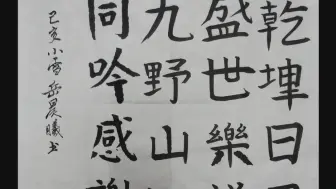 乾坤日
盛世樂
九野山
同吟感謝
己亥小雪岳晨曦书